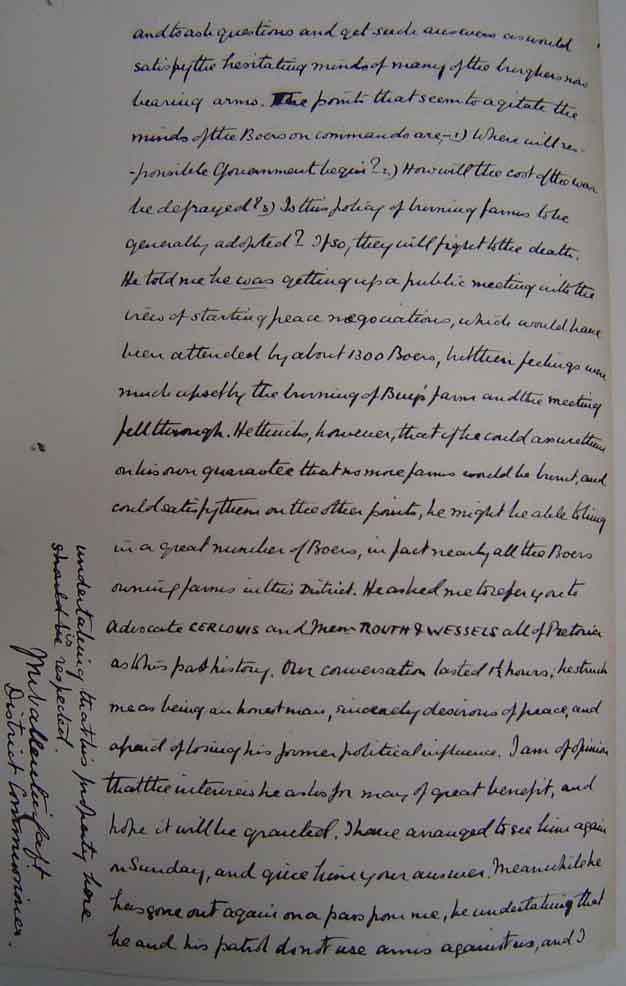 and to ask questions and get such answers as would
satisfy the hesitating minds of many of the burghers now
bearing arms. The points that seem to agitate the
minds of the Boers on commando are,- 1) When will res-
-ponsible Government begin? 2.) How will the cost of the war
be defrayed? 3) Is this policy of burning farms to be
generally adopted? If so, they will fight to the death.
He told me he was getting up a public meeting with the
view of starting peace negociations, which would have
been attended by about 1300 Boers, but their feelings were
much upset by the burning of Buys' farm and the meeting
fell through. He thinks, however, that if he could assure them
on his own guarantee that no more farms would be burnt, and
could satisfy them on the other points, he might be able to bring
in a great number of Boers, in fact nearly all the Boers
owning farms in this District. He asked me to refer you to
Advocate CERLOUIS and Messrs ROUTH & WESSELS all of Pretoria
as to his past history. Our conversation lasted 1½ hours; he struck
me as being an honest man, sincerely desirous of peace, and
afraid of losing his former political influence. I am of opinion
that the interview he asks for may of great benefit, and
hope it will be granted. I have arranged to see him again
on Sunday, and give him your answer. Meanwhile he
has gone out again on a pass from me, he undertaking that
he and his patrol do not use arms against us, and I
undertaking that his property here
should be respected.
Capt
District Commissioner.